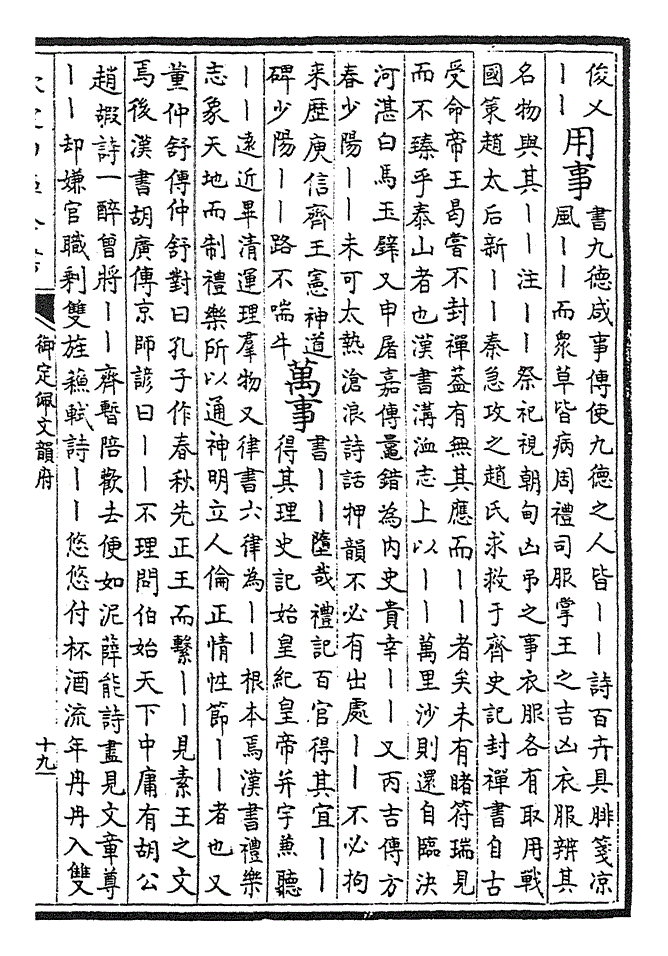 俊乂
丨丨
用事
書九德咸事傳使九德之人皆丨丨詩百卉具腓箋凉
風丨丨而衆草皆病周禮司服掌王之吉凶衣服辨其
名物與其丨丨注丨丨祭祀視朝甸凶弔之事衣服各有取用戰
國策趙太后新丨丨秦急攻之趙氏求救于齊史記封禪書自古
受命帝王曷嘗不封禪葢有無其應而丨丨者矣未有睹符瑞見
而不臻乎泰山者也漢書溝洫志上以丨丨萬里沙則還自臨決
河湛白馬玉璧又申屠嘉傳鼂錯為内史貴幸丨丨又丙吉傳方
春少陽丨丨未可太熱滄浪詩話押韻不必有出處丨丨不必拘
来歴庾信齊王憲神道
碑少陽丨丨路不喘牛
萬事
書丨丨墮哉禮記百官得其宜丨丨
得其理史記始皇紀皇帝并宇兼聽
丨丨遠近畢清運理羣物又律書六律為丨丨根本焉漢書禮樂
志象天地而制禮樂所以通神明立人倫正情性節丨丨者也又
董仲舒傳仲舒對曰孔子作春秋先正王而繫丨丨見素王之文
焉後漢書胡廣傳京師諺曰丨丨不理問伯始天下中庸有胡公
趙嘏詩一醉曾將丨丨齊暫陪歡去便如泥薛能詩盡見文章尊
丨丨却嫌官職剩雙旌蘓軾詩丨丨悠悠付杯酒流年冉冉入雙
御定佩文韻府
十九